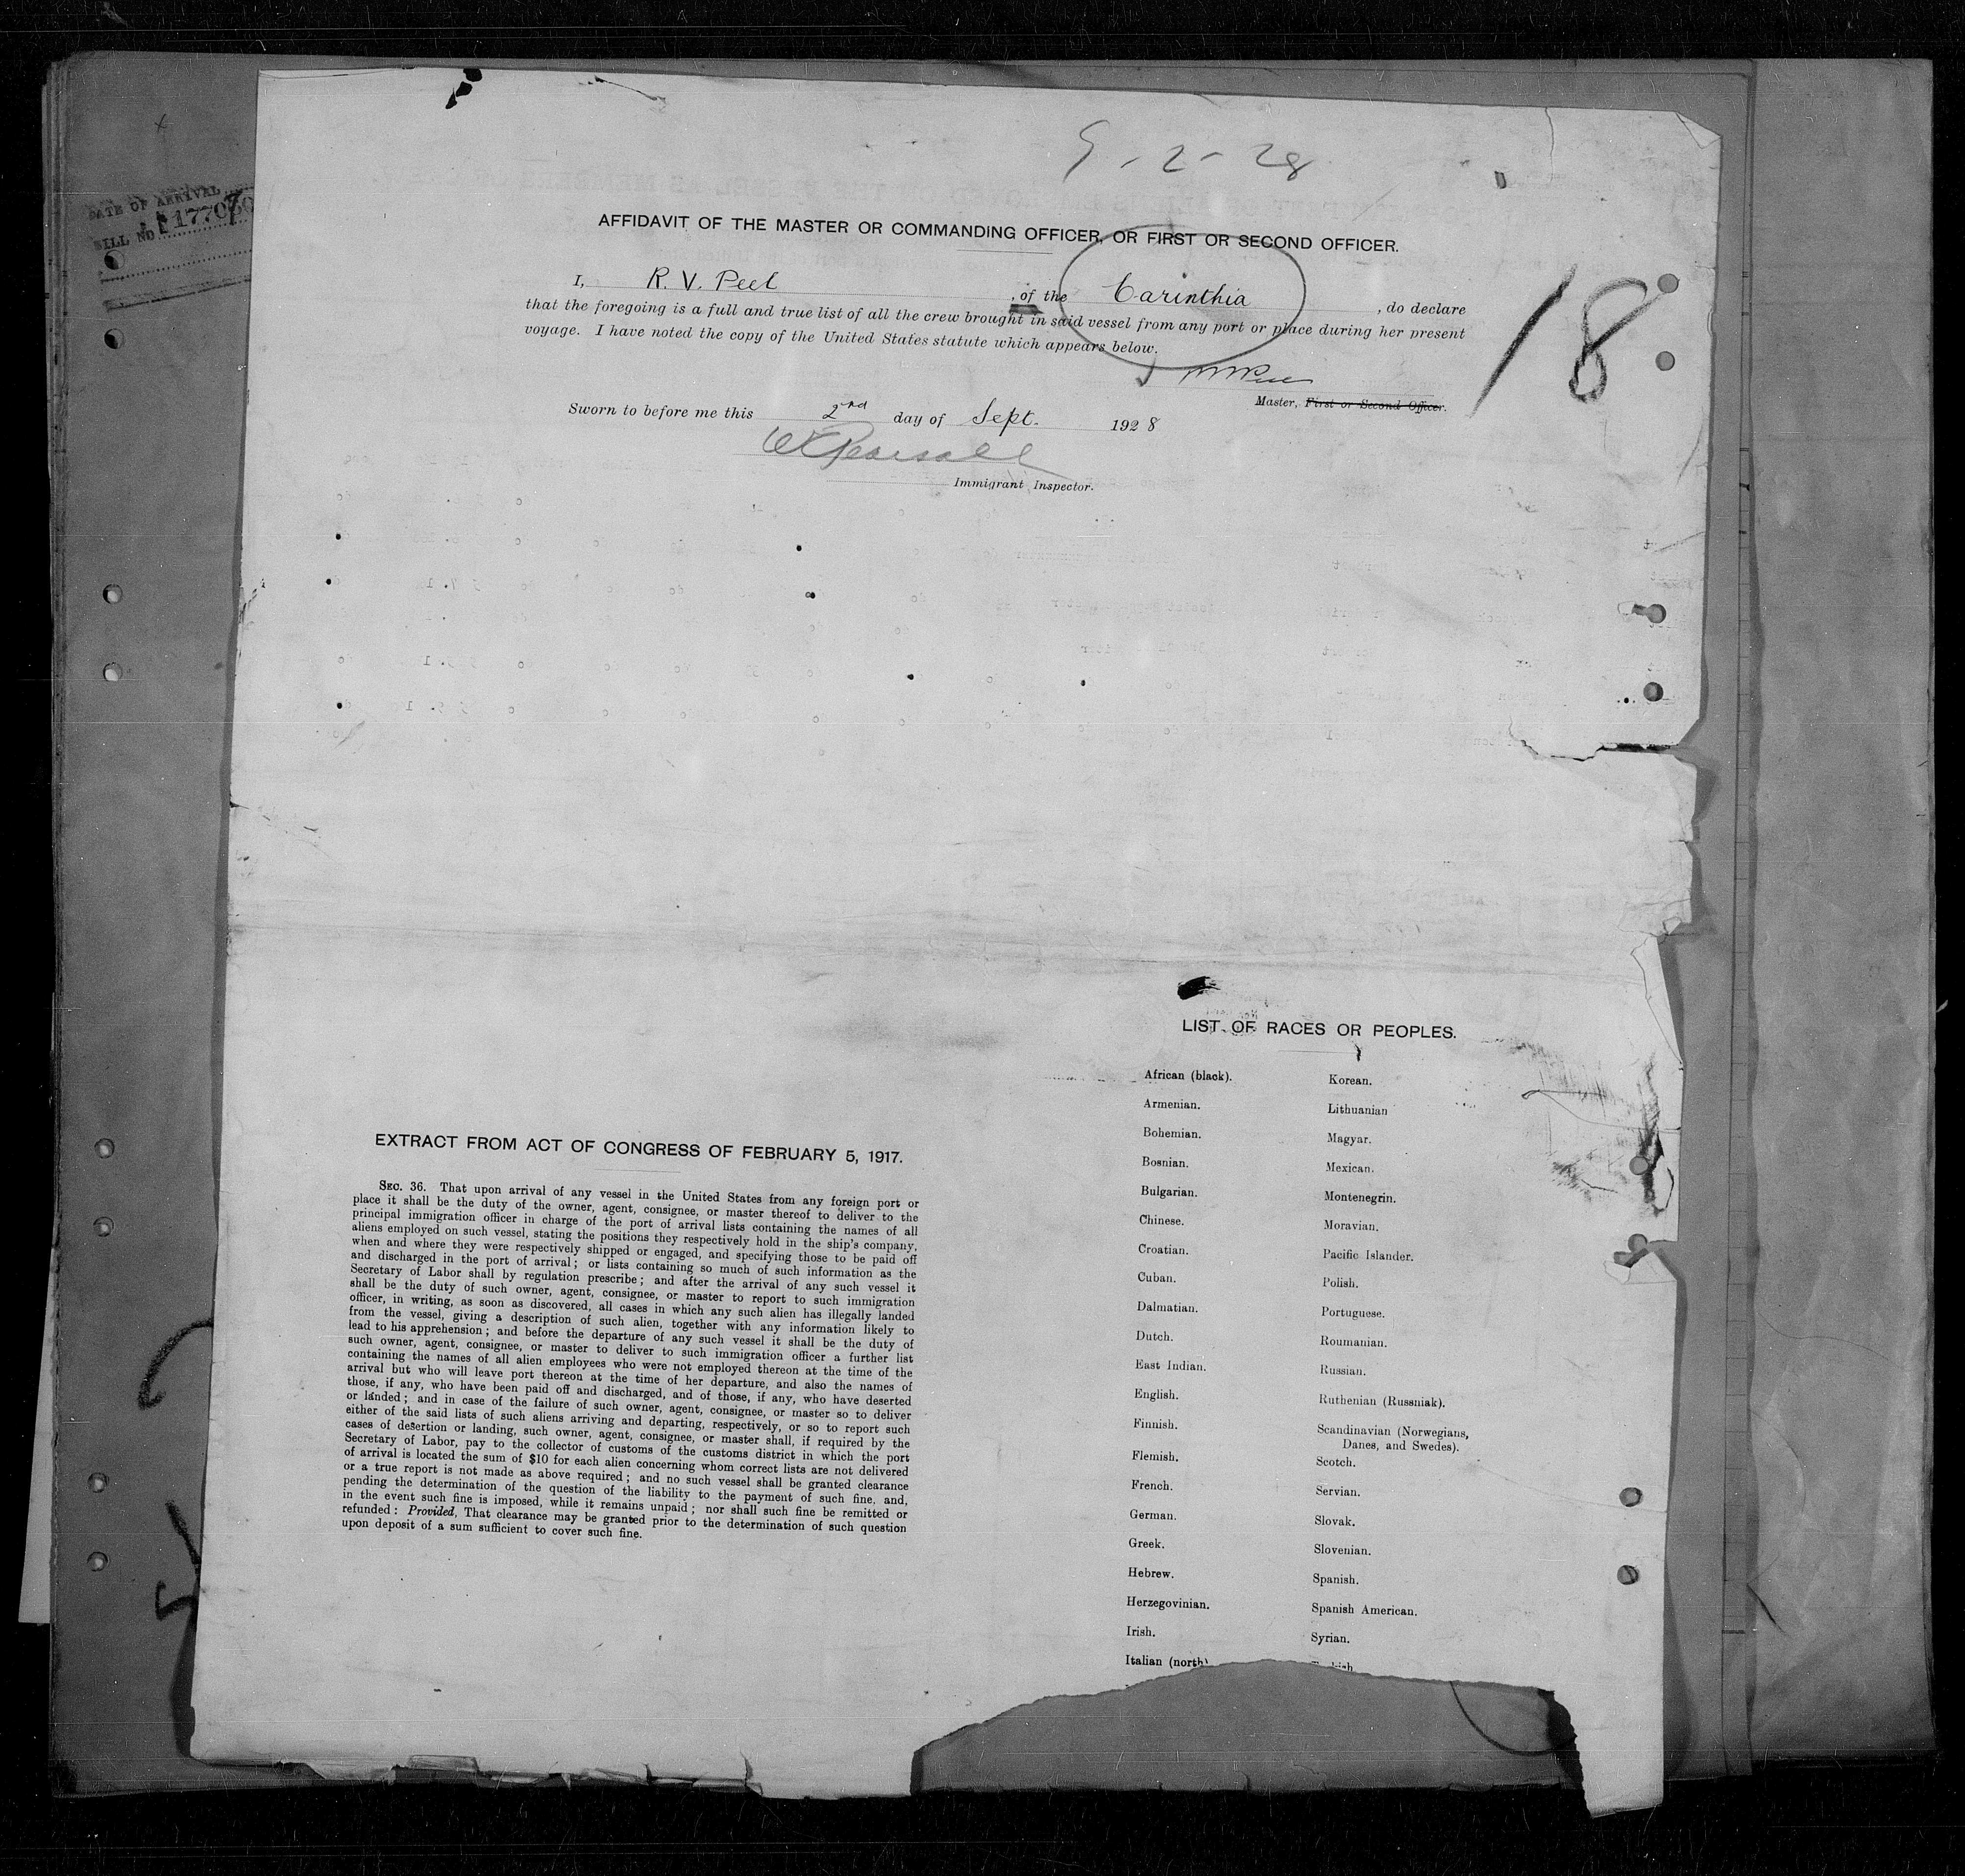 9-2-28
DATE OF ARRIVAL
BILL NO
AFFIDAVIT OF THE MASTER OR COMMANDING OFFICER, OR FIRST OR SECOND OFFICER.
18
I, R. V. Peel, of the Carinthia, do declare
that the foregoing is a full and true list of all the crew brought in said vessel from any port or place during her present
voyage. I have noted the copy of the United States statute which appears below.
Master, First or Second Officer.
Sworn to before me this 2nd day of Sept. 1928
Immigrant Inspector.
LIST OF RACES OR PEOPLES.
African (black).
Armenian.
Bohemian.
Bosnian.
Bulgarian.
Chinese.
Croatian.
Cuban.
Dalmatian.
Dutch.
East Indian.
English.
Finnish.
Flemish.
French.
German.
Greek.
Hebrew.
Herzegovinian.
Irish.
Italian (north)
Korean.
Lithuanian
Magyar.
Mexican.
Montenegrin.
Moravian.
Pacific Islander.
Polish.
Portuguese.
Roumanian.
Russian.
Ruthenian (Russniak).
Scandinavian (Norwegians,
Danes, and Swedes).
Scotch.
Servian.
Slovak.
Slovenian.
Spanish.
Spanish American.
Syrian.
EXTRACT FROM ACT OF CONGRESS OF FEBRUARY 5, 1917.
SEC. 36. That upon arrival of any vessel in the United States from any foreign port or
place it shall be the duty of the owner, agent, consignee, or master thereof to deliver to the
principal immigration officer in charge of the port of arrival lists containing the names of all
aliens employed on such vessel, stating the positions they respectively hold in the ship's company,
when and where they were respectively shipped or engaged, and specifying those to be paid off
and discharged in the port of arrival; or lists containing so much of such information as the
Secretary of Labor shall by regulation prescribe; and after the arrival of any such vessel it
shall be the duty of such owner, agent, consignee, or master to report to such immigration
officer, in writing, as soon as discovered, all cases in which any such alien has illegally landed
from the vessel, giving a description of such alien, together with any information likely to
lead to his apprehension; and before the departure of any such vessel it shall be the duty of
such owner, agent, consignee, or master to deliver to such immigration officer a further list
containing the names of all alien employees who were not employed thereon at the time of the
arrival but who will leave port thereon at the time of her departure, and also the names of
those, if any, who have been paid off and discharged, and of those, if any, who have deserted
or landed; and in case of the failure of such owner, agent, consignee, or master so to deliver
either of the said lists of such aliens arriving and departing, respectively, or so to report such
cases of desertion or landing, such owner, agent, consignee, or master shall, if required by the
Secretary of Labor, pay to the collector of customs of the customs district in which the port
of arrival is located the sum of $10 for each alien concerning whom correct lists are not delivered
or a true report is not made as above required; and no such vessel shall be granted clearance
pending the determination of the question of the liability to the payment of such fine, and,
in the event such fine is imposed, while it remains unpaid; nor shall such fine be remitted or
refunded: Provided, That clearance may be granted prior to the determination of such question
upon deposit of a sum sufficient to cover such fine.